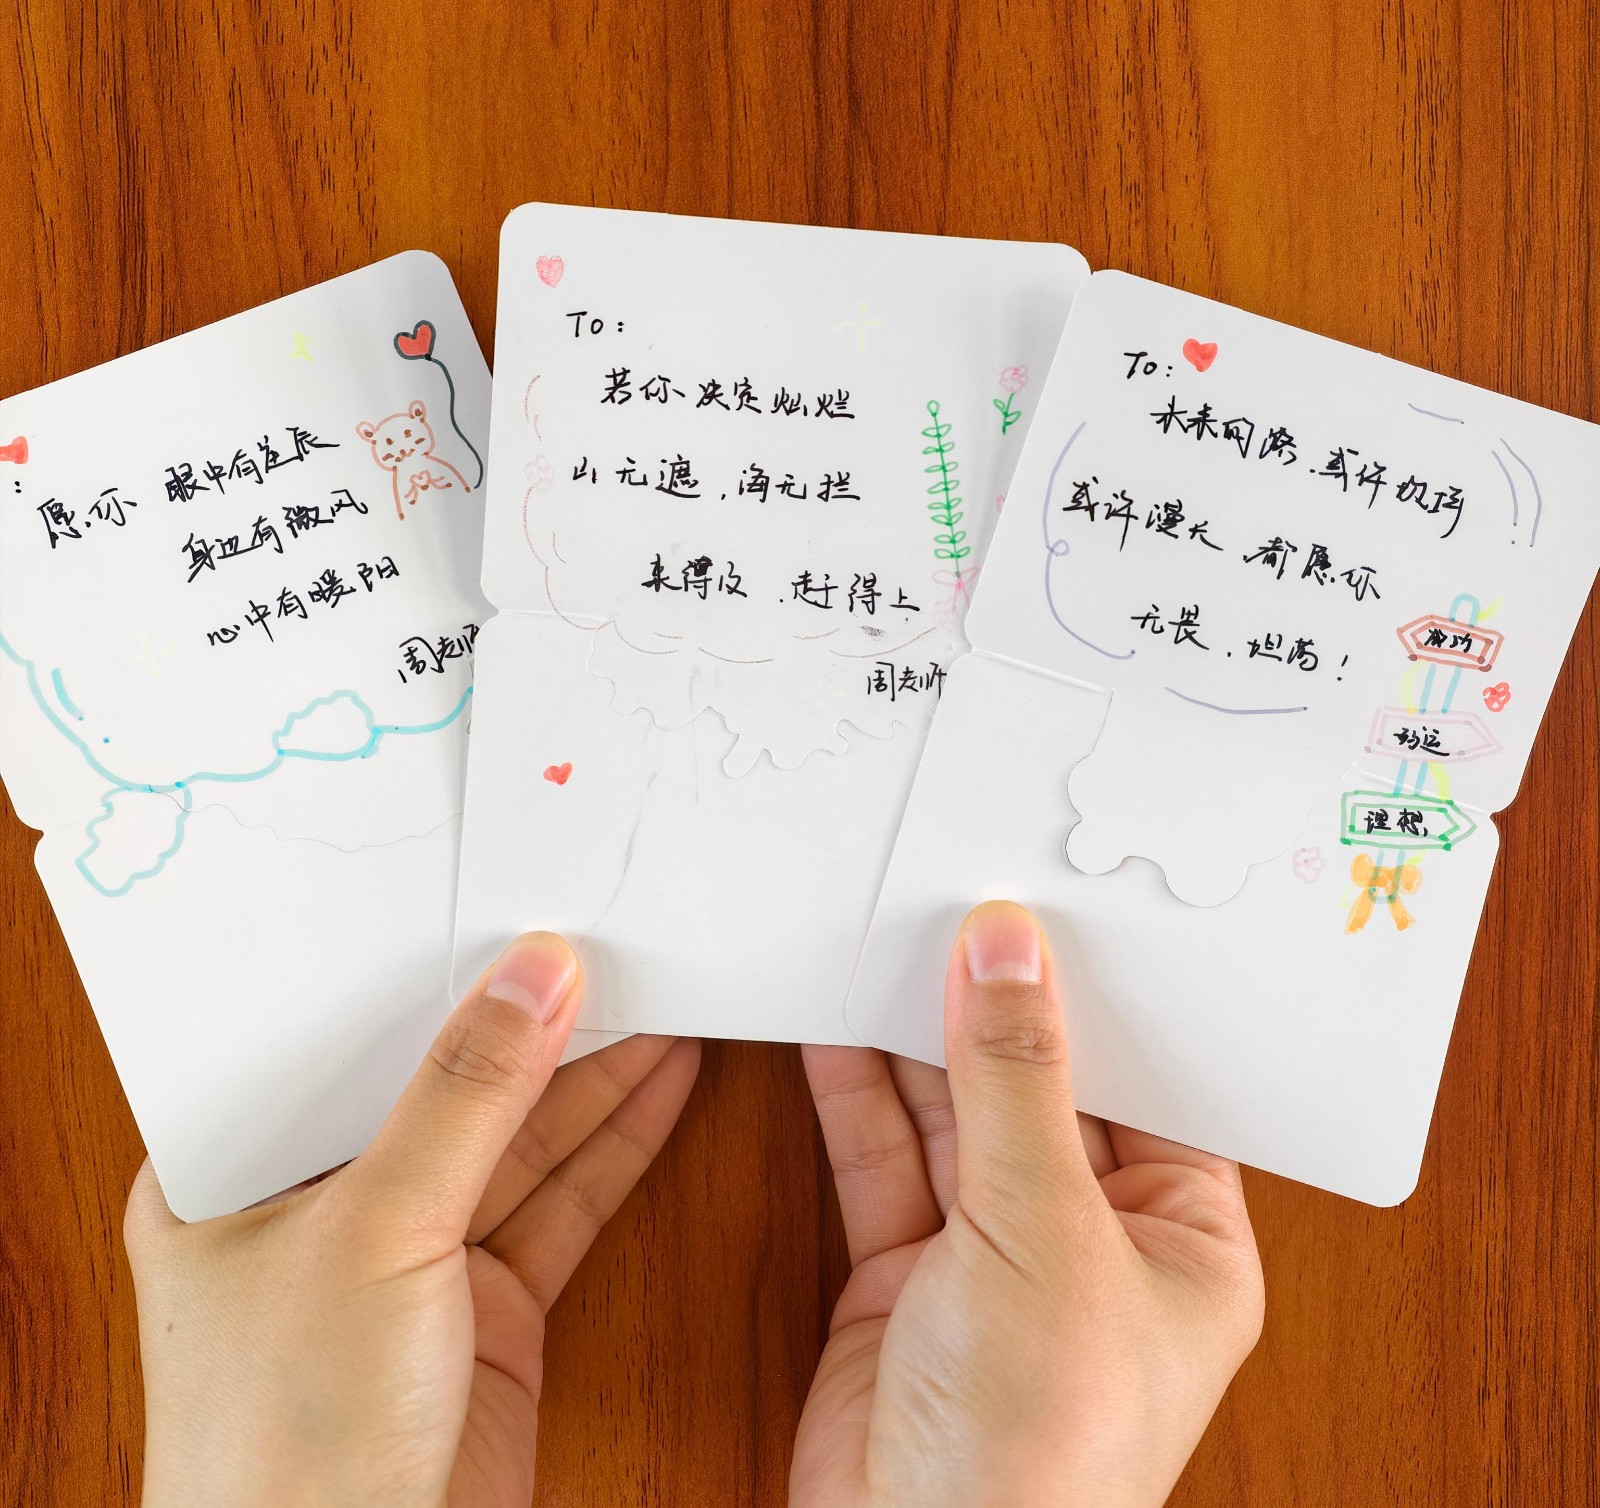 :
愿你 眼中有星辰
身边有微风
心中有暖阳
周老师
To:
若你决定灿烂
山无遮,海无拦
来得及,赶得上
周老师
To:
未来的路,或许坎坷
或许漫长,都愿你
无畏,坦荡!
成功
好运
理想